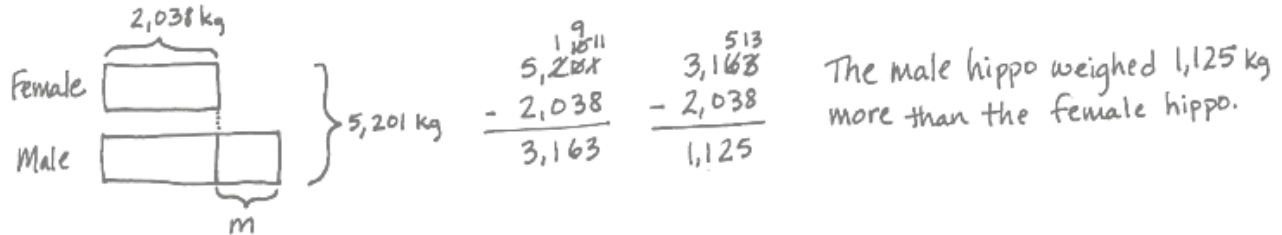 2,038 kg
Female
5,201 kg
Male
m
9
1 10 11
5,201
- 2,038
3,163
5 13
3,163
- 2,038
1,125
The male hippo weighed 1,125 kg
more than the female hippo.